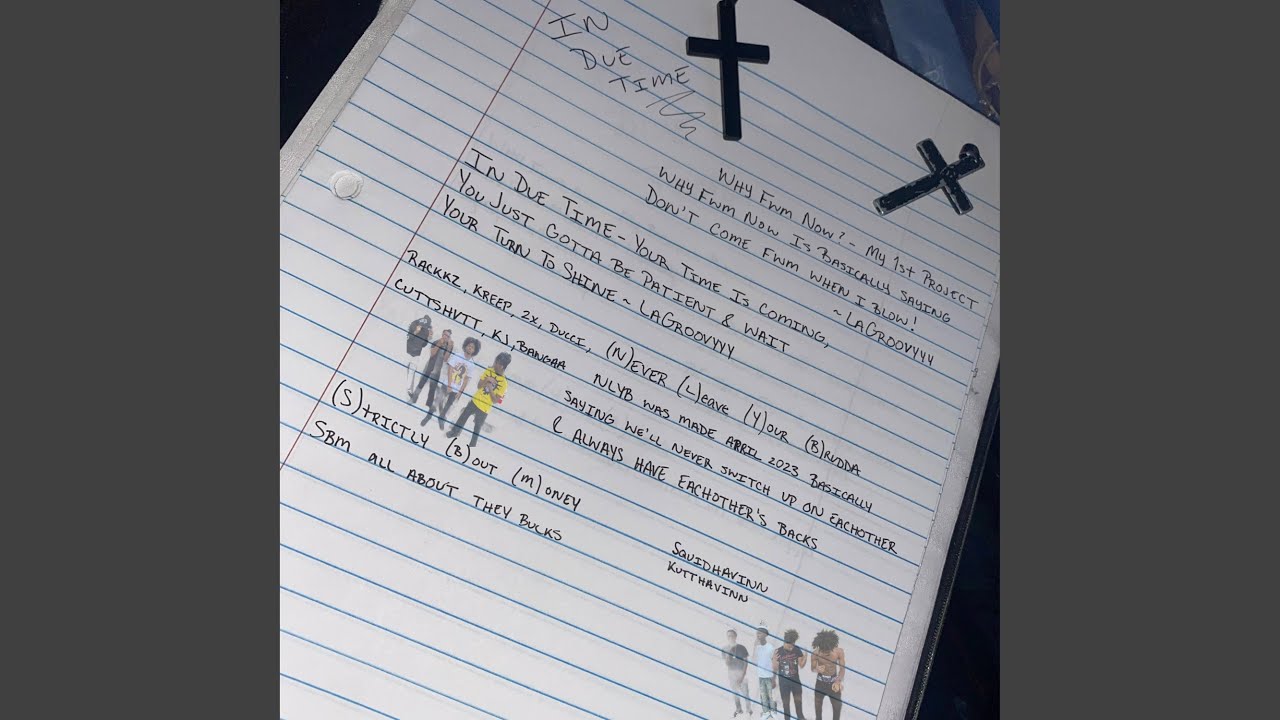 IN
DUE
TIME
WHY FWM NOW? - MY 1st PROJECT
WHY FWM NOW IS BASICALLY SAYING
DON'T COME FWM WHEN I BLOW!
~ LAGROOVYYY
IN DUE TIME - YOUR TIME IS COMING,
YOU JUST GOTTA BE PATIENT & WAIT
YOUR TURN TO SHINE ~ LAGROOVYYY
RACKKZ, KREEP, 2X, DUCCI,
CUTTSHVTT, KJ, BANGAA
(N)EVER (L)eave (Y)OUR (B)RUDDA
NLYB WAS MADE APRIL 2023 BASICALLY
SAYING WE'LL NEVER SWITCH UP ON EACHOTHER
& ALWAYS HAVE EACHOTHER'S BACKS
(S)tRICTLY (B)OUT (M)ONEY
SBM ALL ABOUT THEY BUCKS
SQUIDHAVINN
KUTTHAVINN